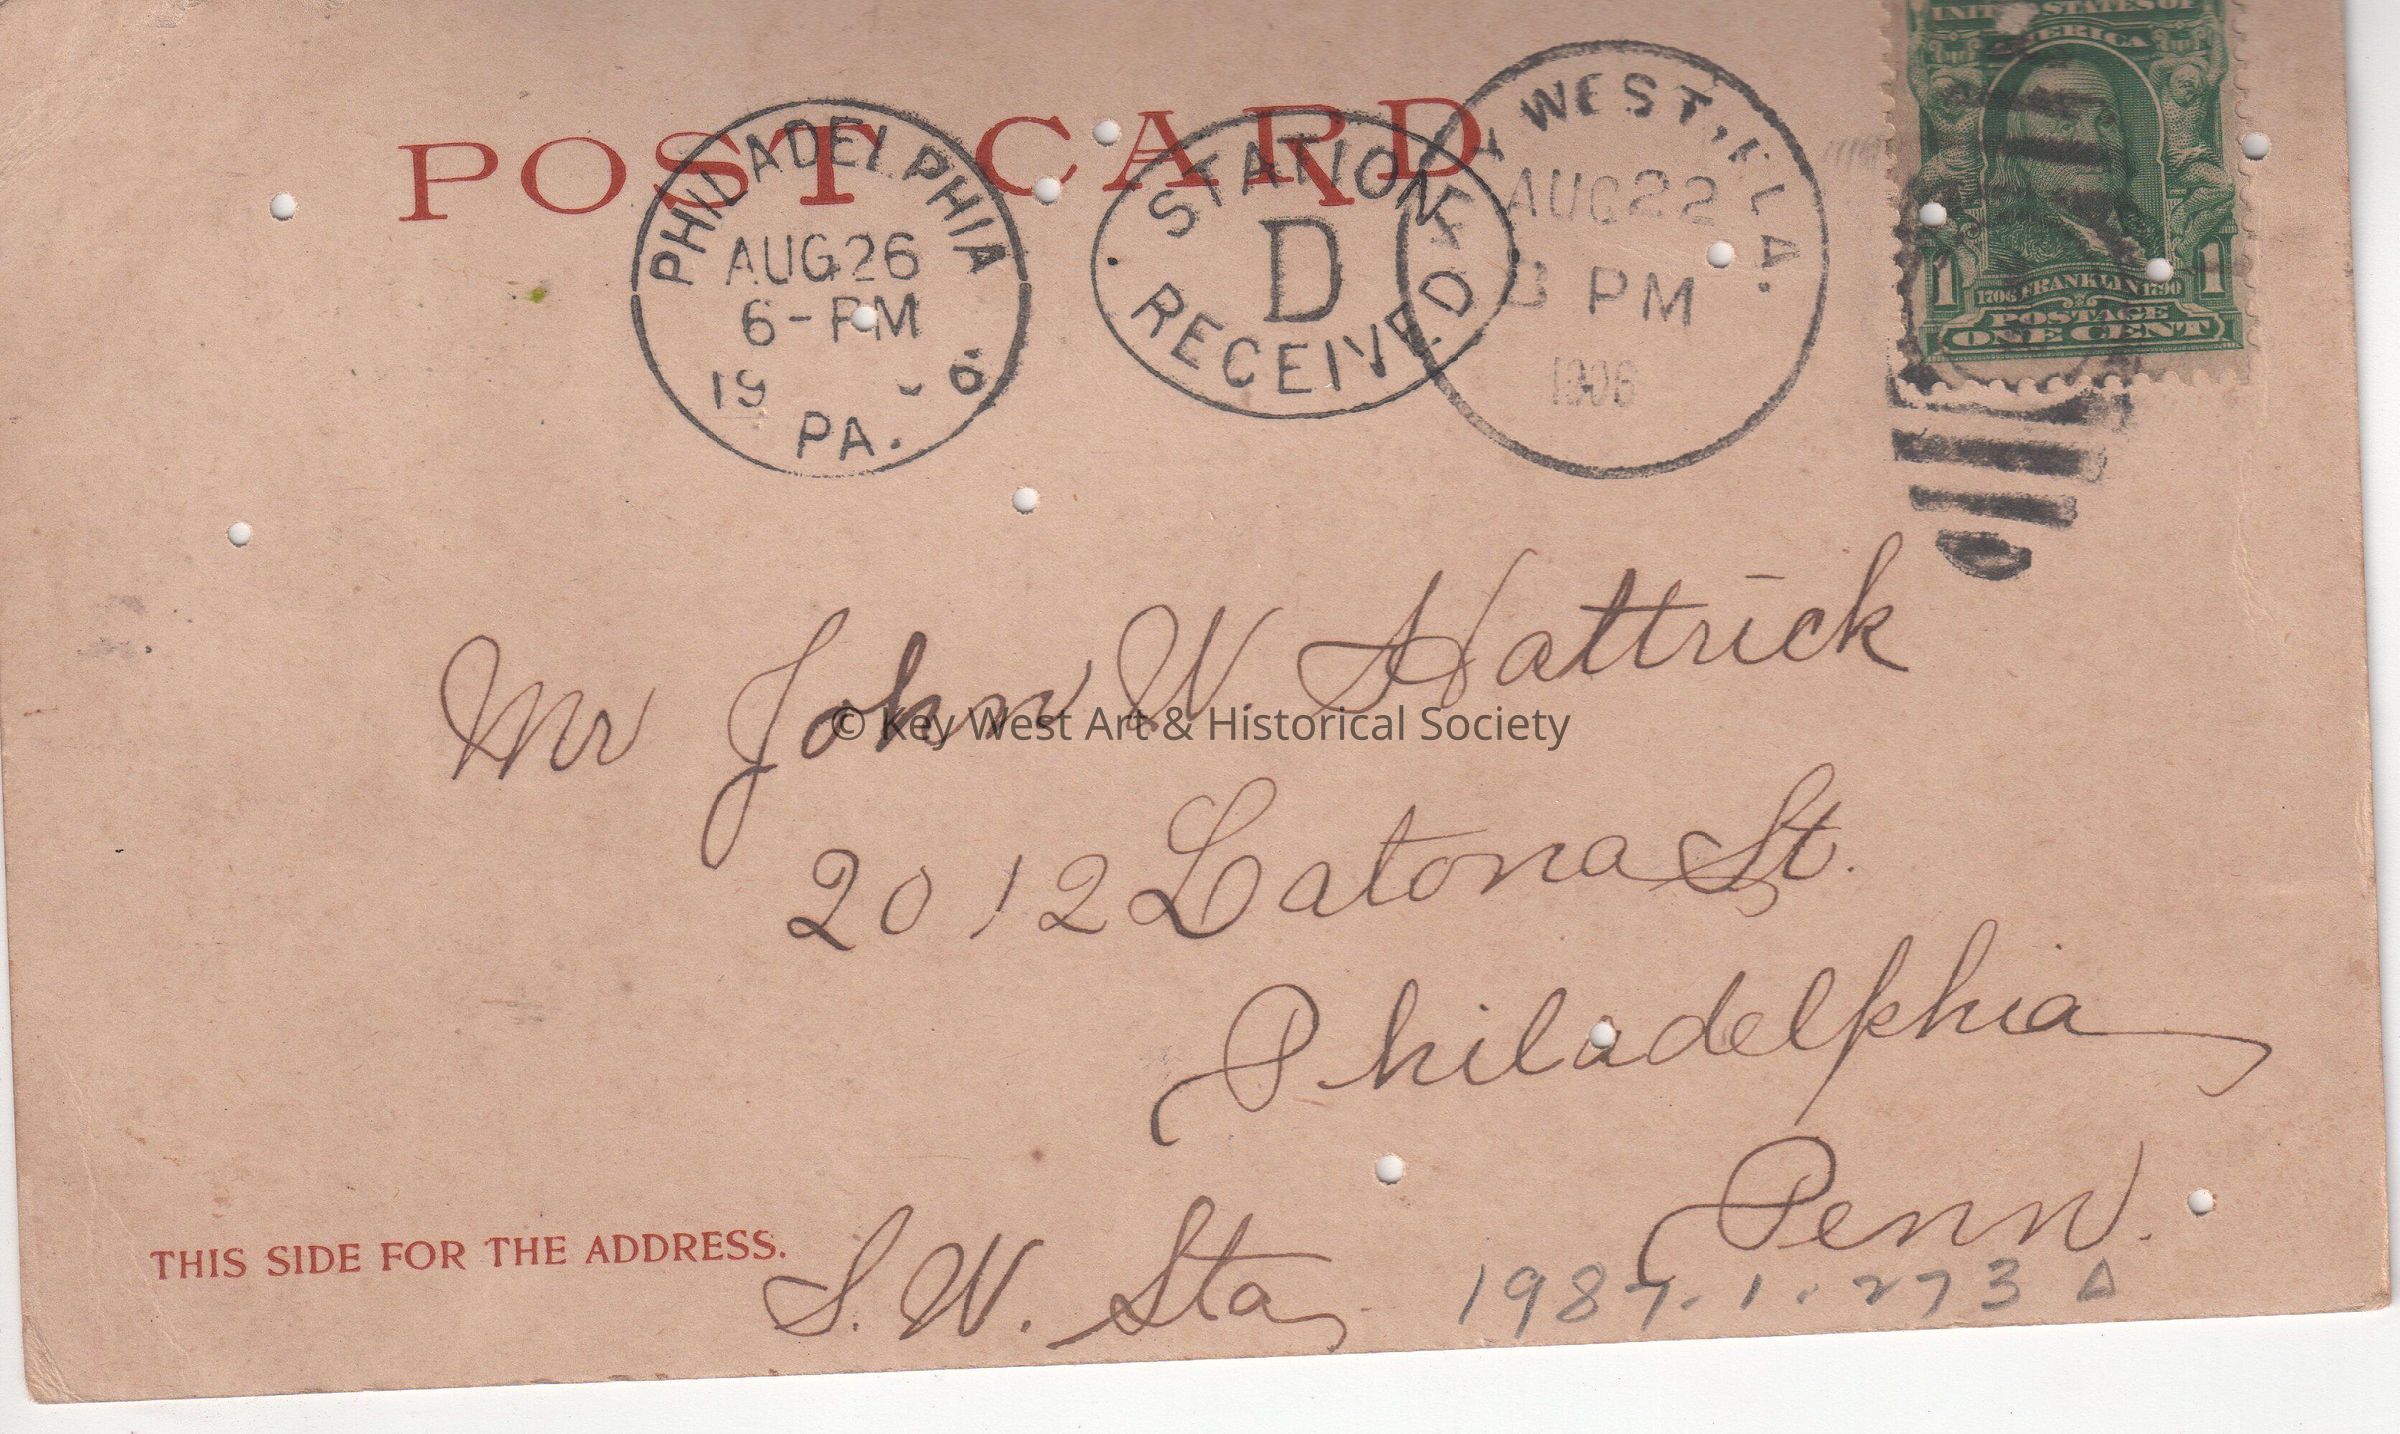 POST CARD
PHILADELPHIA
AUG 26
6-PM
19 6
PA.
STATION
D
RECEIVED
KEY WEST, FLA.
AUG 22
3 PM
1906
UNITED STATES OF
AMERICA
1 1706 FRANKLIN 1790 1
POSTAGE
ONE CENT
Mr John W. Hattrick
© Key West Art & Historical Society
2012 Latona St.
Philadelphia
Penn.
THIS SIDE FOR THE ADDRESS.
S. W. Sta
1987.1.273 A